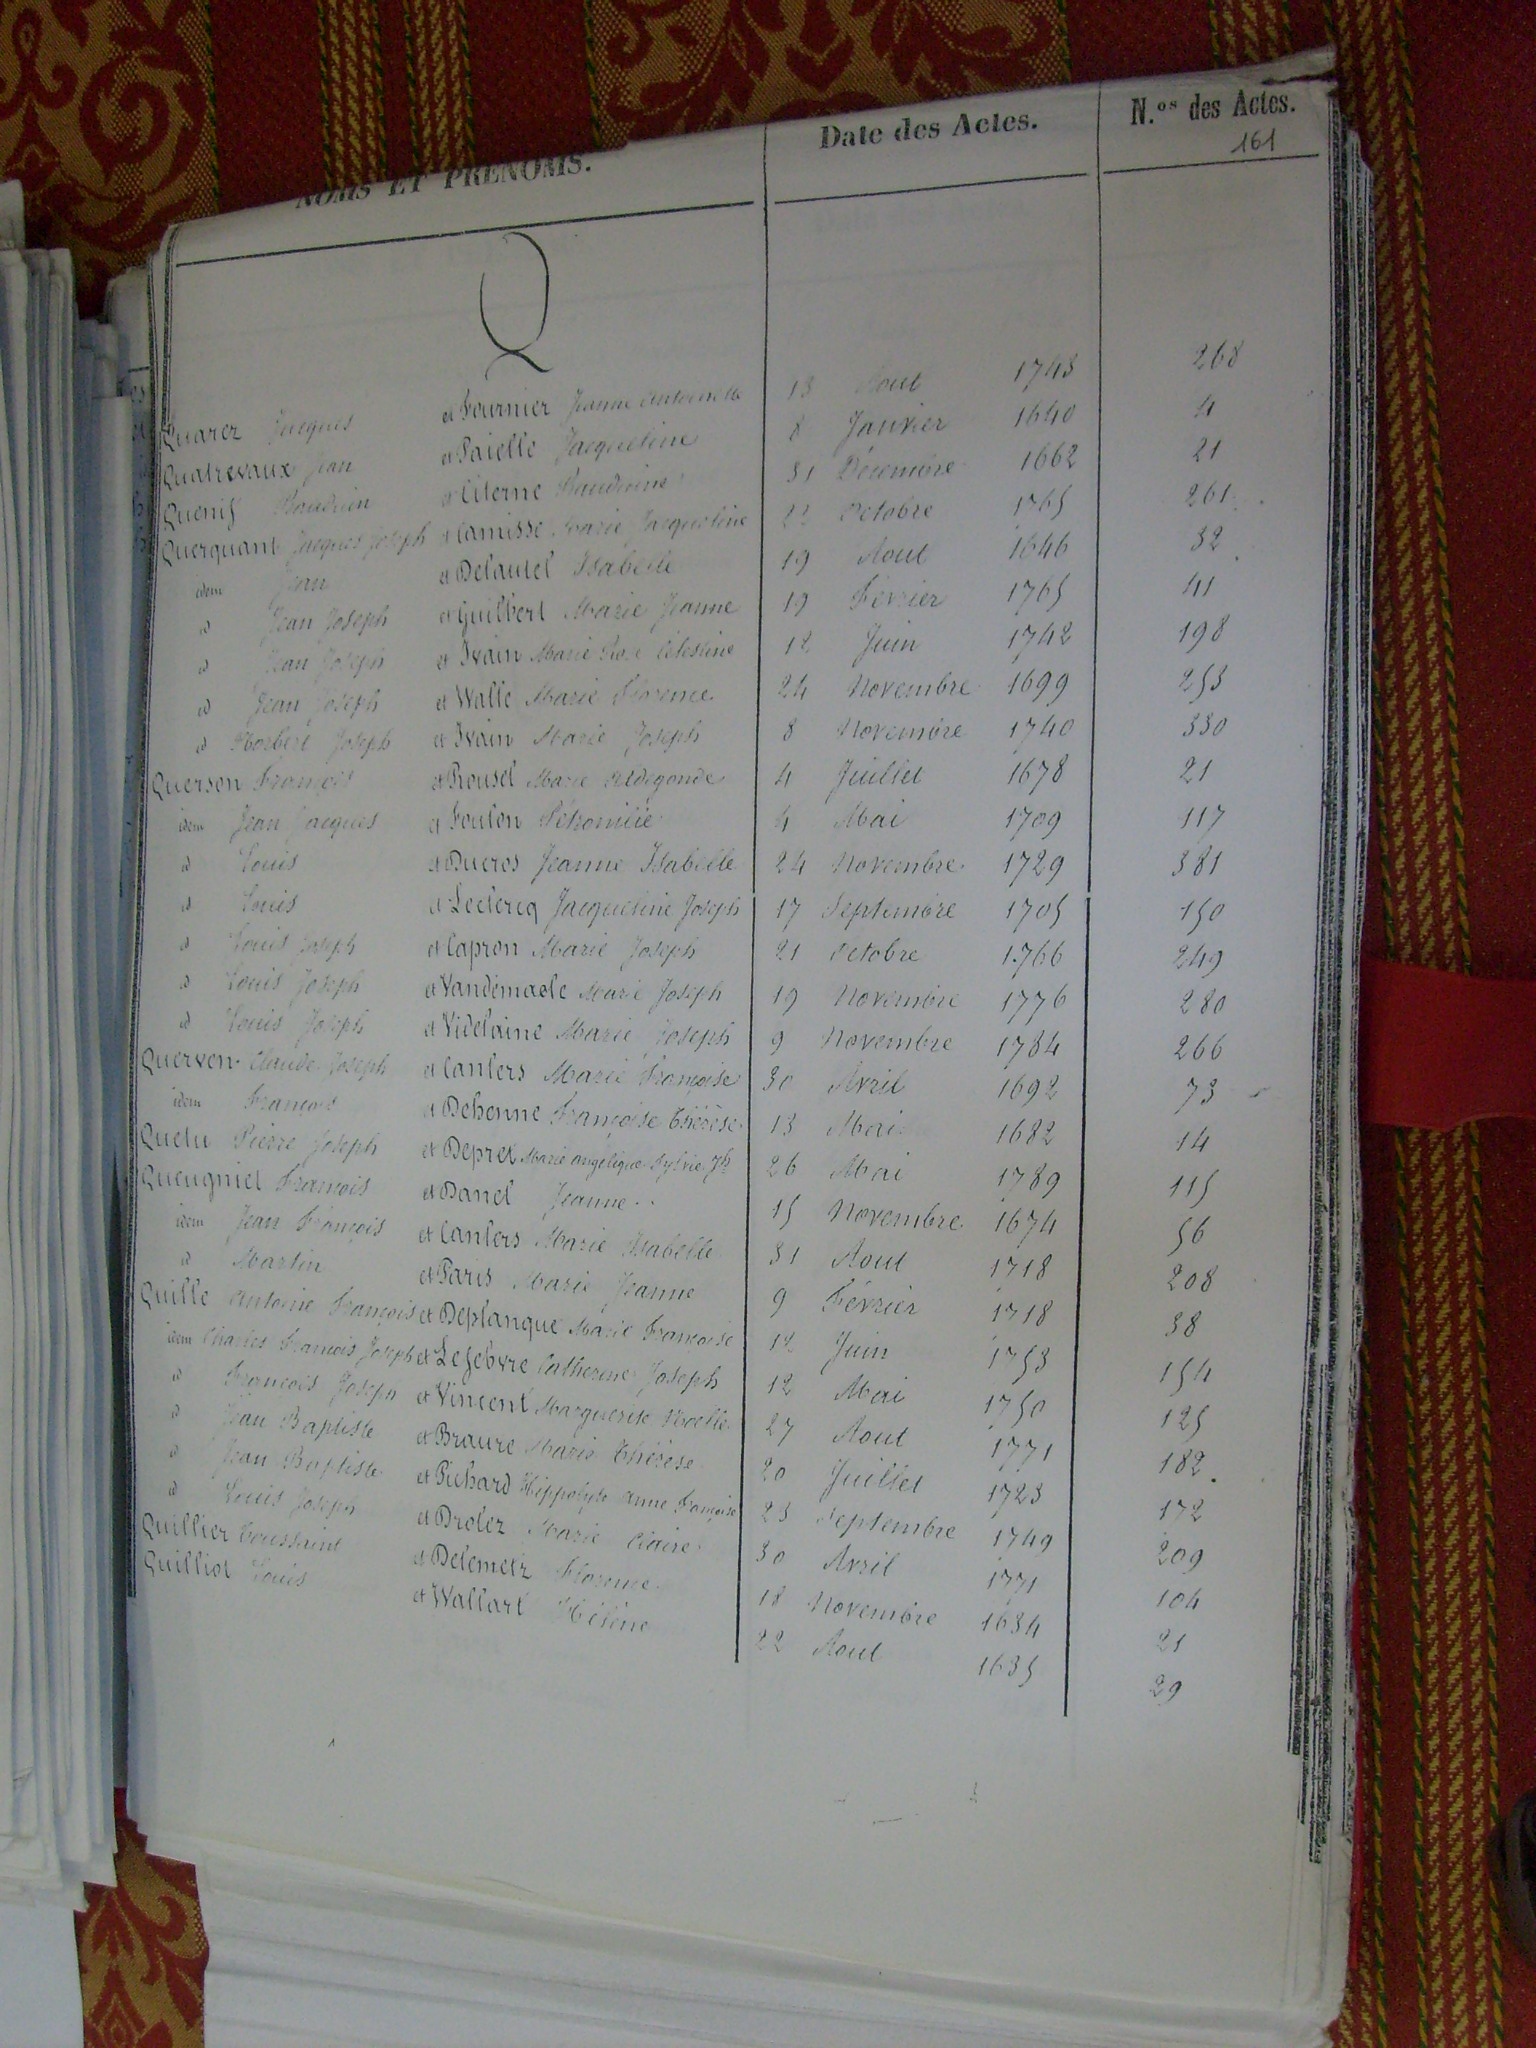 NOMS ET PRÉNOMS. Date des Actes. N.os des Actes.
161
Q
Quarez Jacques et Fournier Jeanne Antoinette 13 Aout 1743 268
Quatrevaux Jean et Paielle Jacqueline 8 Janvier 1640 4
et Citerne 31 Décembre 1662 21
Querquant Jacques Joseph et Camisse Marie Jacqueline 22 Octobre 1765 261
idem Jean et Delautel Isabelle 19 Aout 1646 32
id Jean Joseph et Guilbert Marie Jeanne 19 Février 1765 41
id Jean Joseph et Ivain Marie Rose Célestine 12 Juin 1742 198
id Jean Joseph et Walle Marie Florence 24 Novembre 1699 253
id Norbert Joseph et Ivain Marie Joseph 8 Novembre 1740 330
Querson François et Rousel Marie Aldegonde 4 Juillet 1678 21
idem Jean Jacques et Foulon Pétronille 4 Mai 1709 117
id Louis et Ducros Jeanne Isabelle 24 Novembre 1729 381
id Louis et Leclercq Jacqueline Joseph 17 Septembre 1705 150
id Louis Joseph et Capron Marie Joseph 21 Octobre 1766 249
id Louis Joseph et Vandemaele Marie Joseph 19 Novembre 1776 280
id Louis Joseph et Videlaine Marie Joseph 9 Novembre 1784 266
Querven Claude Joseph et Canlers Marie Françoise 30 Avril 1692 73
idem François et Dehenne Françoise Thérèse 13 Mai 1682 14
Quetu Pierre Joseph et Depret Marie Angélique Sylvie Jh 26 Mai 1789 115
Queugniet François et Danel Jeanne 15 Novembre 1674 56
idem Jean François et Canlers Marie Isabelle 31 Aout 1718 208
id Martin et Paris Marie Jeanne 9 Février 1718 38
Quille Antoine François et Deplanque Marie Françoise 12 Juin 1753 154
idem Charles François Joseph et Lefebvre Catherine Joseph 12 Mai 1750 125
id François Joseph et Vincent Marguerite Noelle 27 Aout 1771 182
id Jean Baptiste et Braure Marie Thérèse 20 Juillet 1723 172
id Jean Baptiste et Pichard Hippolyte Anne Françoise 23 Septembre 1749 209
id Louis Joseph et Drolez Marie Claire 30 Avril 1771 104
Quillier Toussaint et Delemetz Florence 18 Novembre 1634 21
Quilliot Louis et Wallart Hélène 22 Aout 1635 29